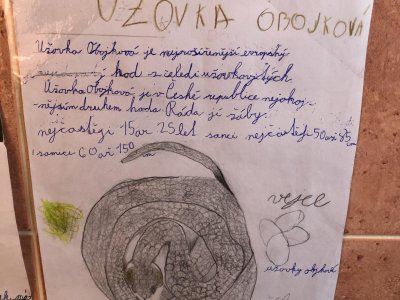 UŽOVKA OBOJKOVÁ
Užovka Obojková je nejrozšířenější evropský
had z čeledi užovkovytých.
Užovka Obojková je v České republice nejhoj-
nějším druhem hada Ráda jí žáby.
nejčastěji 15 až 25 let samci nejčastěji 50 až 85 cm
samice 60 až 150 cm
vejce
užovky obojkové